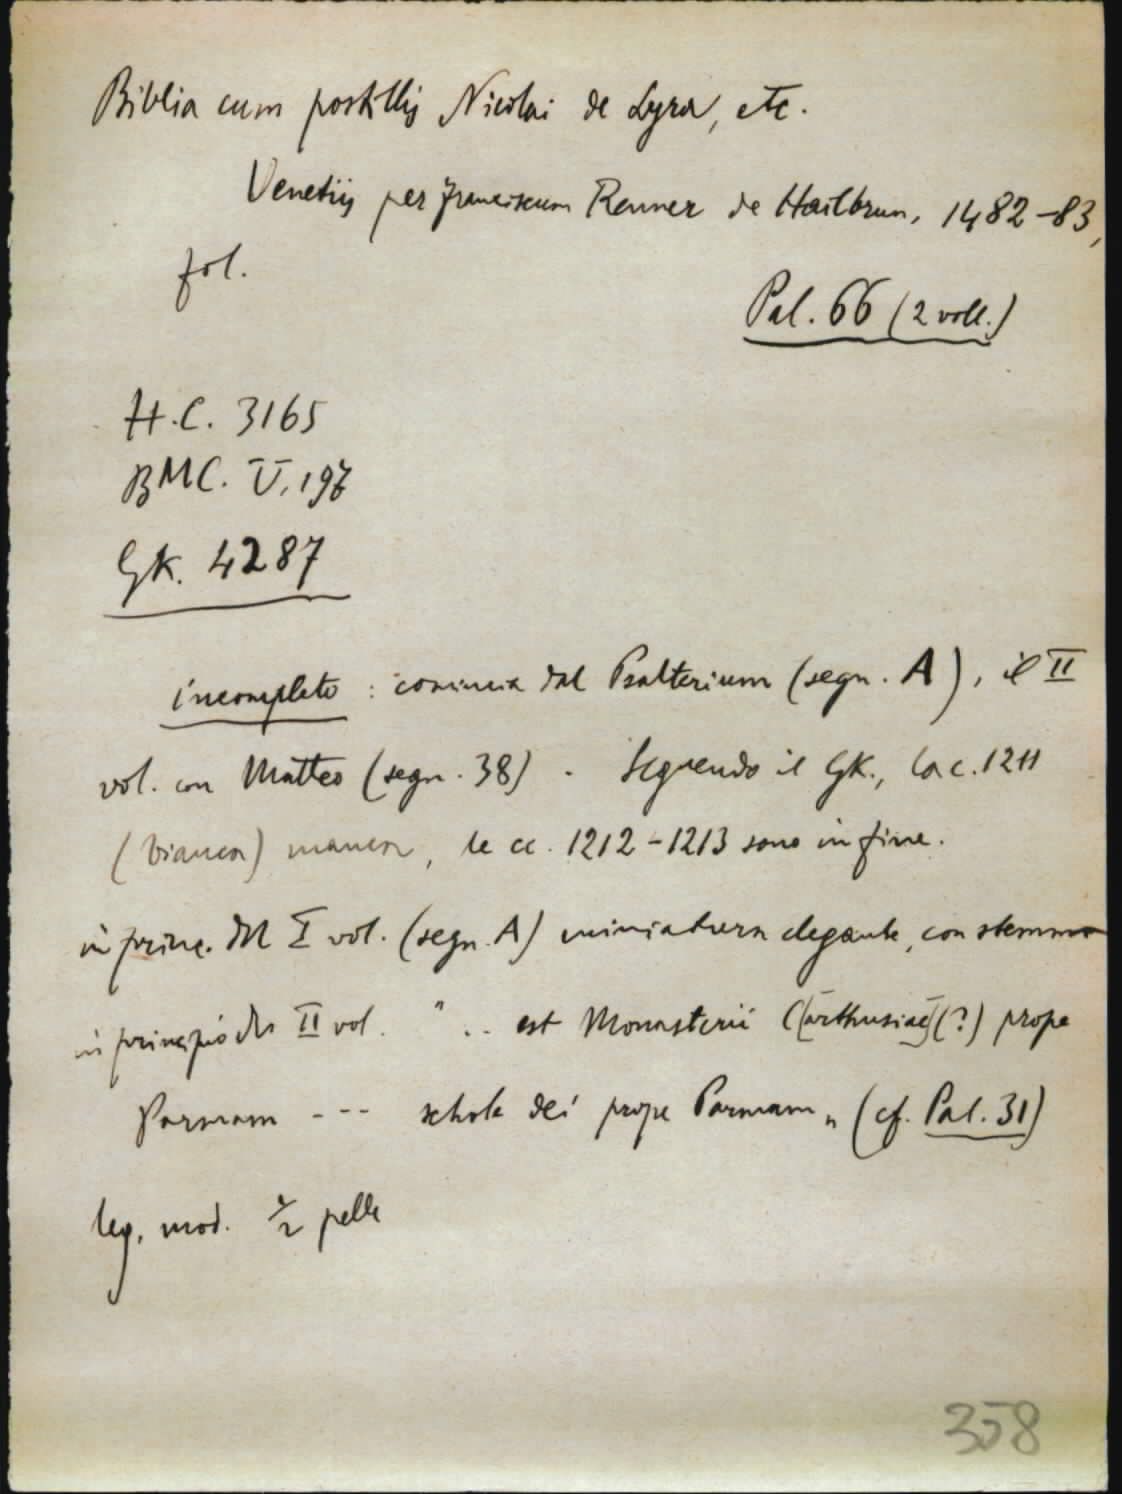 Biblia cum postillis Nicolai de Lyra, etc.
Venetiis per Franciscum Renner de Hailbrun, 1482-83,
fol.
Pal. 66 (2 voll.)
H.C. 3165
BMC. V, 197
GK. 4287
incompleto : comincia dal Psalterium (segn. A), il II
vol. con Matteo (segn. 38) . Seguendo il GK., la c. 1211
(bianca) manca, le cc. 1212-1213 sono in fine.
in princ. del I vol. (segn. A) miniatura elegante, con stemma
in principio del II vol. " .. est Monasterii C[arthusiae](?) prope
Parmam --- schola dei prope Parmam „ (cf. Pal. 31)
leg. mod. 1/2 pelle
358